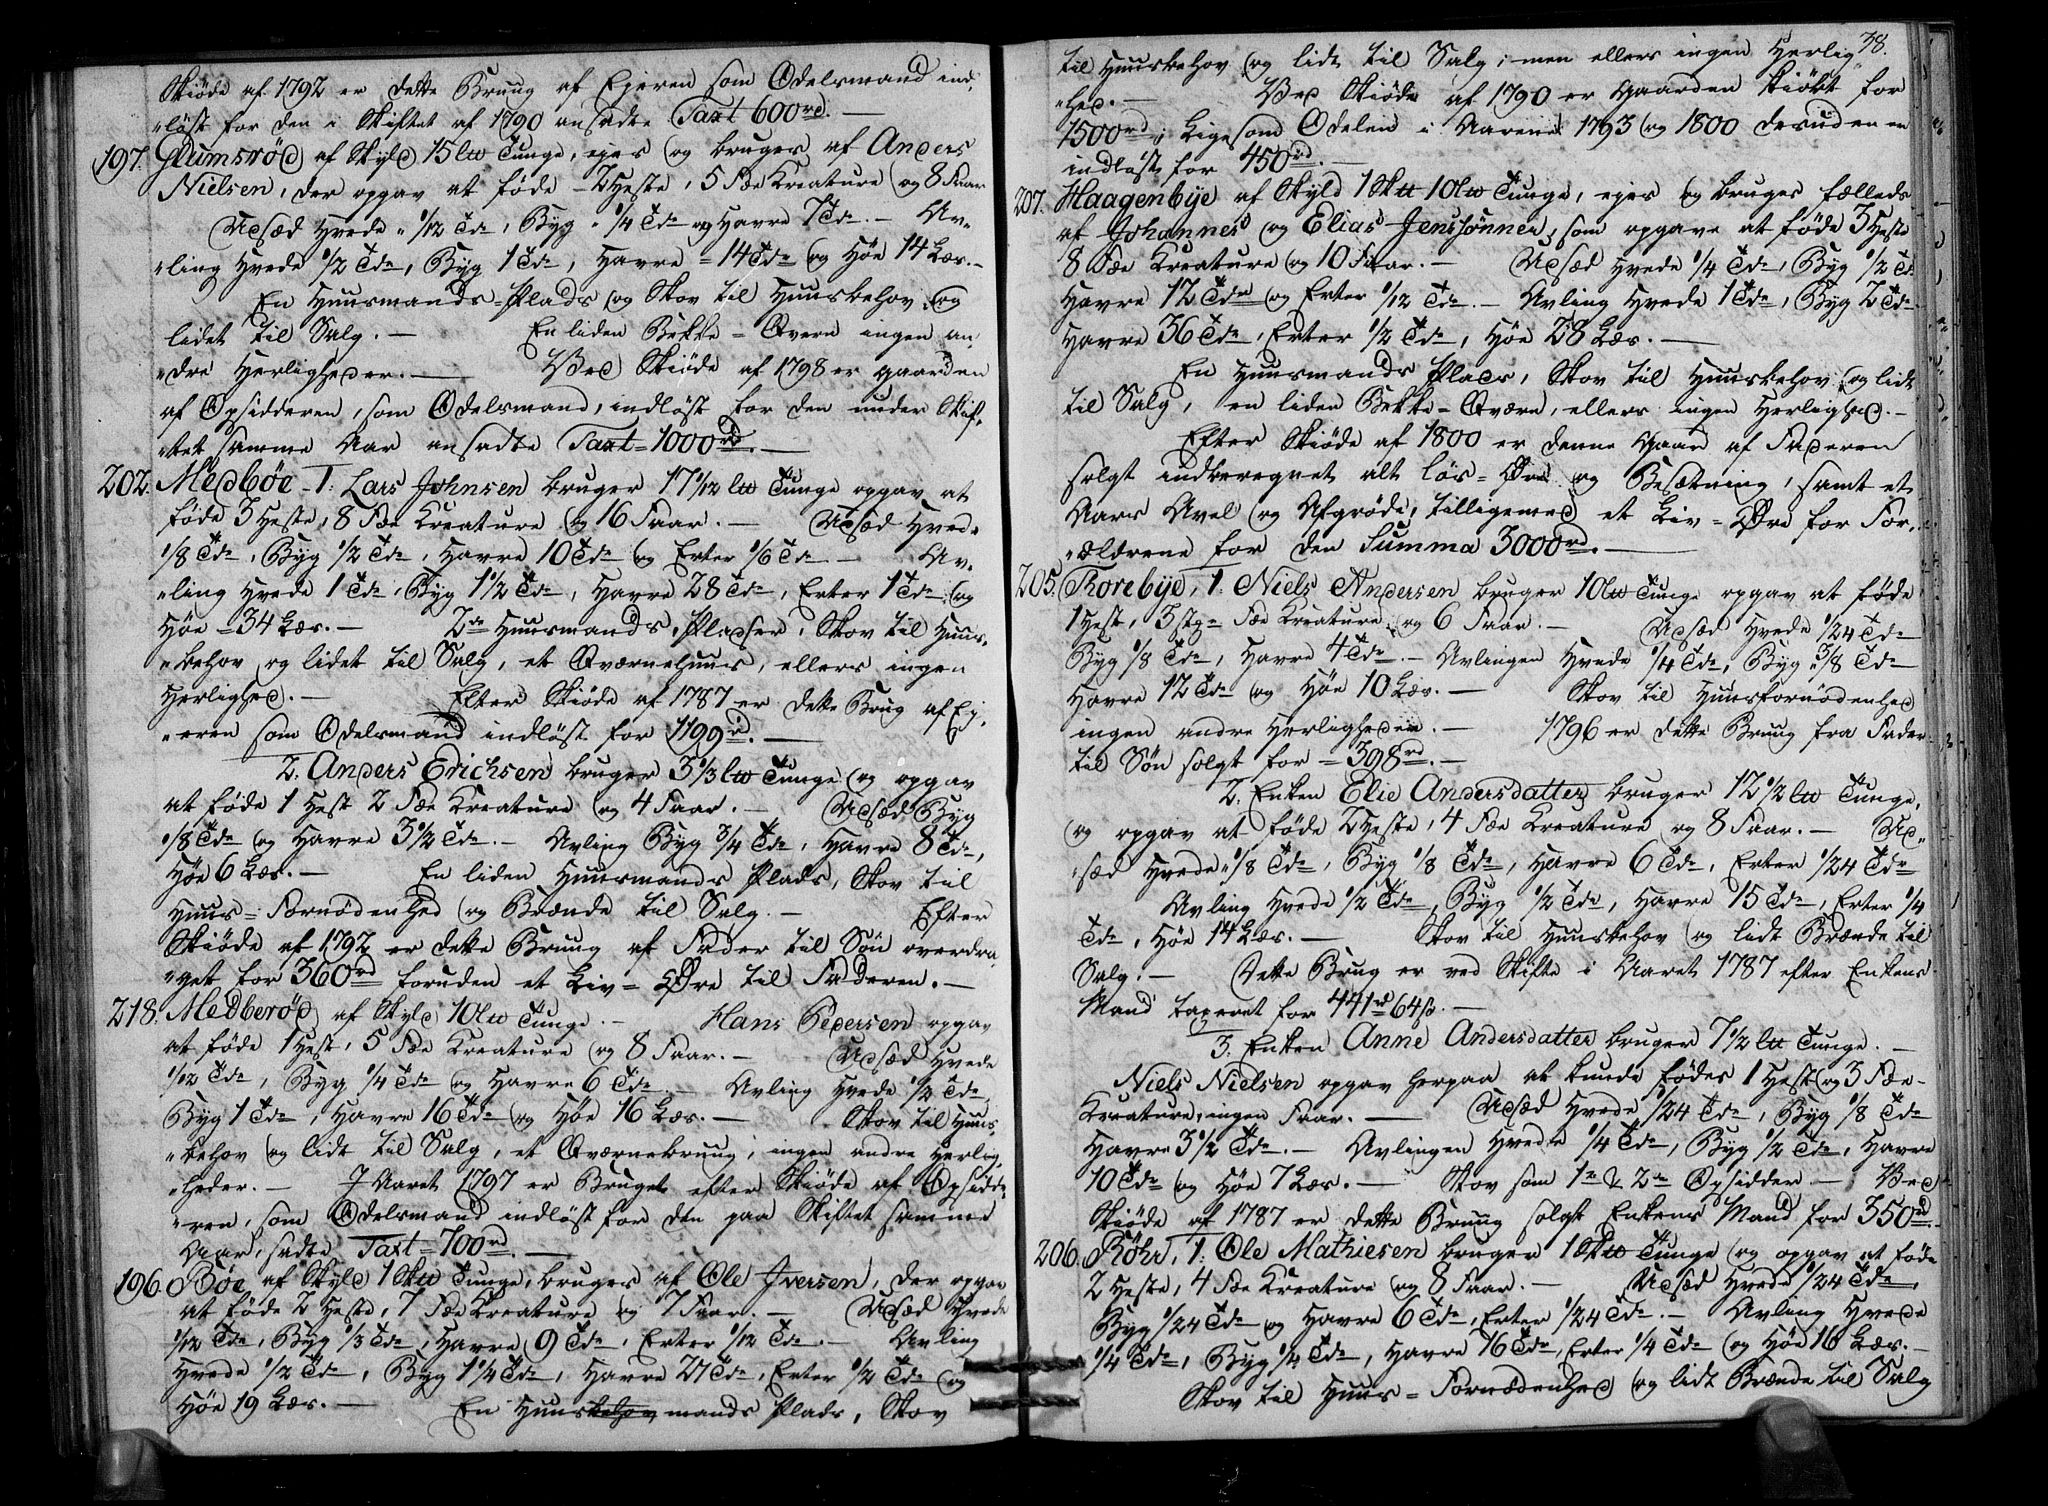 Skiöde af 1792 er dette Bruug af Ejeren som Odelsmand ind,
„löst for den i Skiftet af 1790 ansadte Taxt 600rd. —
197. Glumsröd af Skyld 15 l℔ Tunge, ejes og bruges af Anders
Nielsen, der opgav at föde 2 Heste, 5 Fæe Kreature og 8 Faar
Udsæd Hvede 1/12 Tde, Byg 1/4 Tde og Havre 7 Tde. — Av„
„ling Hvede 1/2 Tde, Byg 1 Tde, Havre = 14 Tde og Höe 14 Læs. —
En Huusmands=Plads og Skov til Huusbehov, og
lidet til Salg. — En liden Bekke=Qvern ingen an„
„dre Herligheder. — Ved Skiöde af 1798 er gaarden
af Opsidderen, som Odelsmand, indlöst for den under Skif„
„tet samme Aar ansadte Taxt = 1000rd. —
202. Medböe 1. Lars Johnsen bruger 17 1/2 l℔ Tunge opgav at
föde 3 Heste, 8 Fæe Kreature og 16 Faar. — Udsæd Hvede
1/8 Tde, Byg 1/2 Tde, Havre 10 Tde og Erter 1/6 Tde. — Av„
„ling Hvede 1 Tde, Byg 1 1/2 Tde, Havre 28 Tde, Erter 1 Tde, og
Höe = 34 Læs. — 2de Huusmands Pladser, Skov til Huus„
„behov og lidet til Salg, et Qværnehuus, ellers ingen
Herlighed. — Efter Skiöde af 1787 er dette Brug af Ej„
„eren som Odelsmand indlöst for 1199rd. —
2. Anders Erichsen bruger 3 1/3 l℔ Tunge og opgav
at föde 1 Hest 2 Fæe Kreature og 4 Faar. — Udsæd Byg
1/8 Tde og Havre 3 1/2 Tde. — Avling Byg 3/4 Tde, Havre 8 Tde,
Höe 6 Læs. — En liden Huusmands Plads, Skov til
Huus=Fornödenhed og Brænde til Salg. — Efter
Skiöde af 1792 er dette Bruug af Fader til Sön overdra„
„get for 360rd foruden et Liv=Öre til Faderen. —
218. Medberöd af Skyld 10 l℔ Tunge. — Hans Pedersen opgav
at föde 1 Hest, 5 Fæe Kreature og 8 Faar. — Udsæd Hvede
1/12 Tde, Byg 1/4 Tde og Havre 6 Tde. Avling Hvede 1/2 Tde,
Byg 1 Tde, Havre 16 Tde og Höe 16 Læs. — Skov til Huus„
„behov og lidt til Salg, et Qværnebruug, ingen andre Herlig„
„heder. — I Aaret 1797 er Bruget efter Skiöde af Opsidde„
„ren, som Odelsmand indlöst for den paa Skiftet samme
Aar, sadte Taxt = 700rd. —
196. Böe af Skyld 1 Sk℔ Tunge, bruges af Ole Iversen, der opgav
at föde 2 Heste, 7 Fæe Kreature og 7 Faar. — Udsæd Hvede
1/12 Tde, Byg 1/3 Tde, Havre 9 Tde, Erter 1/12 Tde. — Avling
Hvede 1/2 Tde, Byg 1 1/4 Tde, Havre 27 Tde, Erter 1/2 Tde og
Höe 19 Læs. — En Huusbehov mands Plads, Skov
78.
til Huusbehov og lidt til Salg; men ellers ingen Herlig„
„hed. — Ved Skiöde af 1790 er gaarden skiöbt for
1500rd; Ligesom Odelen i Aarene 1793 og 1800 desuden er
indlöst for 450rd. —
207. Haagenbye af Skyld 1 Sk℔ 10 l℔ Tunge, ejes og bruges fælleds
af Johannes og Elias Jenssönner, som opgave at föde 3 Heste
8 Fæe Kreature og 10 Faar. — Udsæd Hvede 1/4 Tde, Byg 1/2 Tde
Havre 12 Tde og Erter 1/12 Tde. — Avling Hvede 1 Tde, Byg 2 Tde
Havre 36 Tde, Erter 1/2 Tde, Höe 28 Læs. —
En Huusmands Plads, Skov til Huusbehov, og lidt
til Salg, en liden Bekke=Qværn, ellers ingen Herlighed. —
Efter Skiöde af 1800 er denne Gaard af Faderen
solgt indberegnet alt lös=Öre og Besætning, samt et
Aars Avel og Afgröde, tilligemed et Liv=Öre for For„
„ældrene for den Summa 3000rd. —
205. Torebye, 1. Niels Andersen bruger 10 l℔ Tunge opgav at föde
1 Hest, 3 stk= Fæe Kreature, og 6 Faar. — Udsæd Hvede 1/24 Tde
Byg 1/8 Tde, Havre 4 Tde. — Avlingen Hvede 1/4 Tde, Byg 3/8 Tde
Havre 12 Tde og Höe 10 Læs. — Skov til Huusfornödenhed
ingen andre Herligheder. — 1796 er dette Bruug fra Fader
til Sön solgt for = 398rd. —
2. Enken Elie Andersdatter bruger 12 1/2 l℔ Tunge,
og opgav at föde 2 Heste, 4 Fæe Kreature og 8 Faar. — Ud„
„sæd Hvede 1/8 Tde, Byg 1/8 Tde, Havre 6 Tde, Erter 1/24 Tde
Avling Hvede 1/2 Tde, Byg 1/2 Tde, Havre 15 Tde, Erter 1/4
Tde, Höe 14 Læs. — Skov til Huusbehov og lidt Brænde til
Salg. — Dette Brug er ved Skifte i Aaret 1787 efter Enkens
Mand taxeret for 441rd 64s. —
3. Enken Anne Andersdatter bruger 7 1/2 l℔ Tunge. —
Niels Nielsen opgav herpaa at kunde födes 1 Hest og 3 Fæe-
Kreature, ingen Faar. — Udsæd Hvede 1/24 Tde, Byg 1/8 Tde
Havre 3 1/2 Tde. — Avlingen Hvede 1/4 Tde, Byg 1/2 Tde, Havre
10 Tde og Höe 7 Læs. — Skov som 1te & 2den Opsidder — Ved
Skiöde af 1787 er dette Bruug solgt Enkens Mand for 350rd
206. Röhr, 1. Ole Mathiesen bruger 1 Sk℔ Tunge og opgav at föde
2 Heste, 4 Fæe Kreature og 8 Faar. — Udsæd Hvede 1/24 Tde,
Byg 1/24 Tde og Havre 6 Tde, Erter 1/24 Tde. — Avling Hvede
1/4 Tde, Byg 1/4 Tde, Havre 16 Tde, Erter 1/4 Tde og Höe 16 Læs. —
Skov til Huus=Fornödenhed og lidt Brænde til Salg